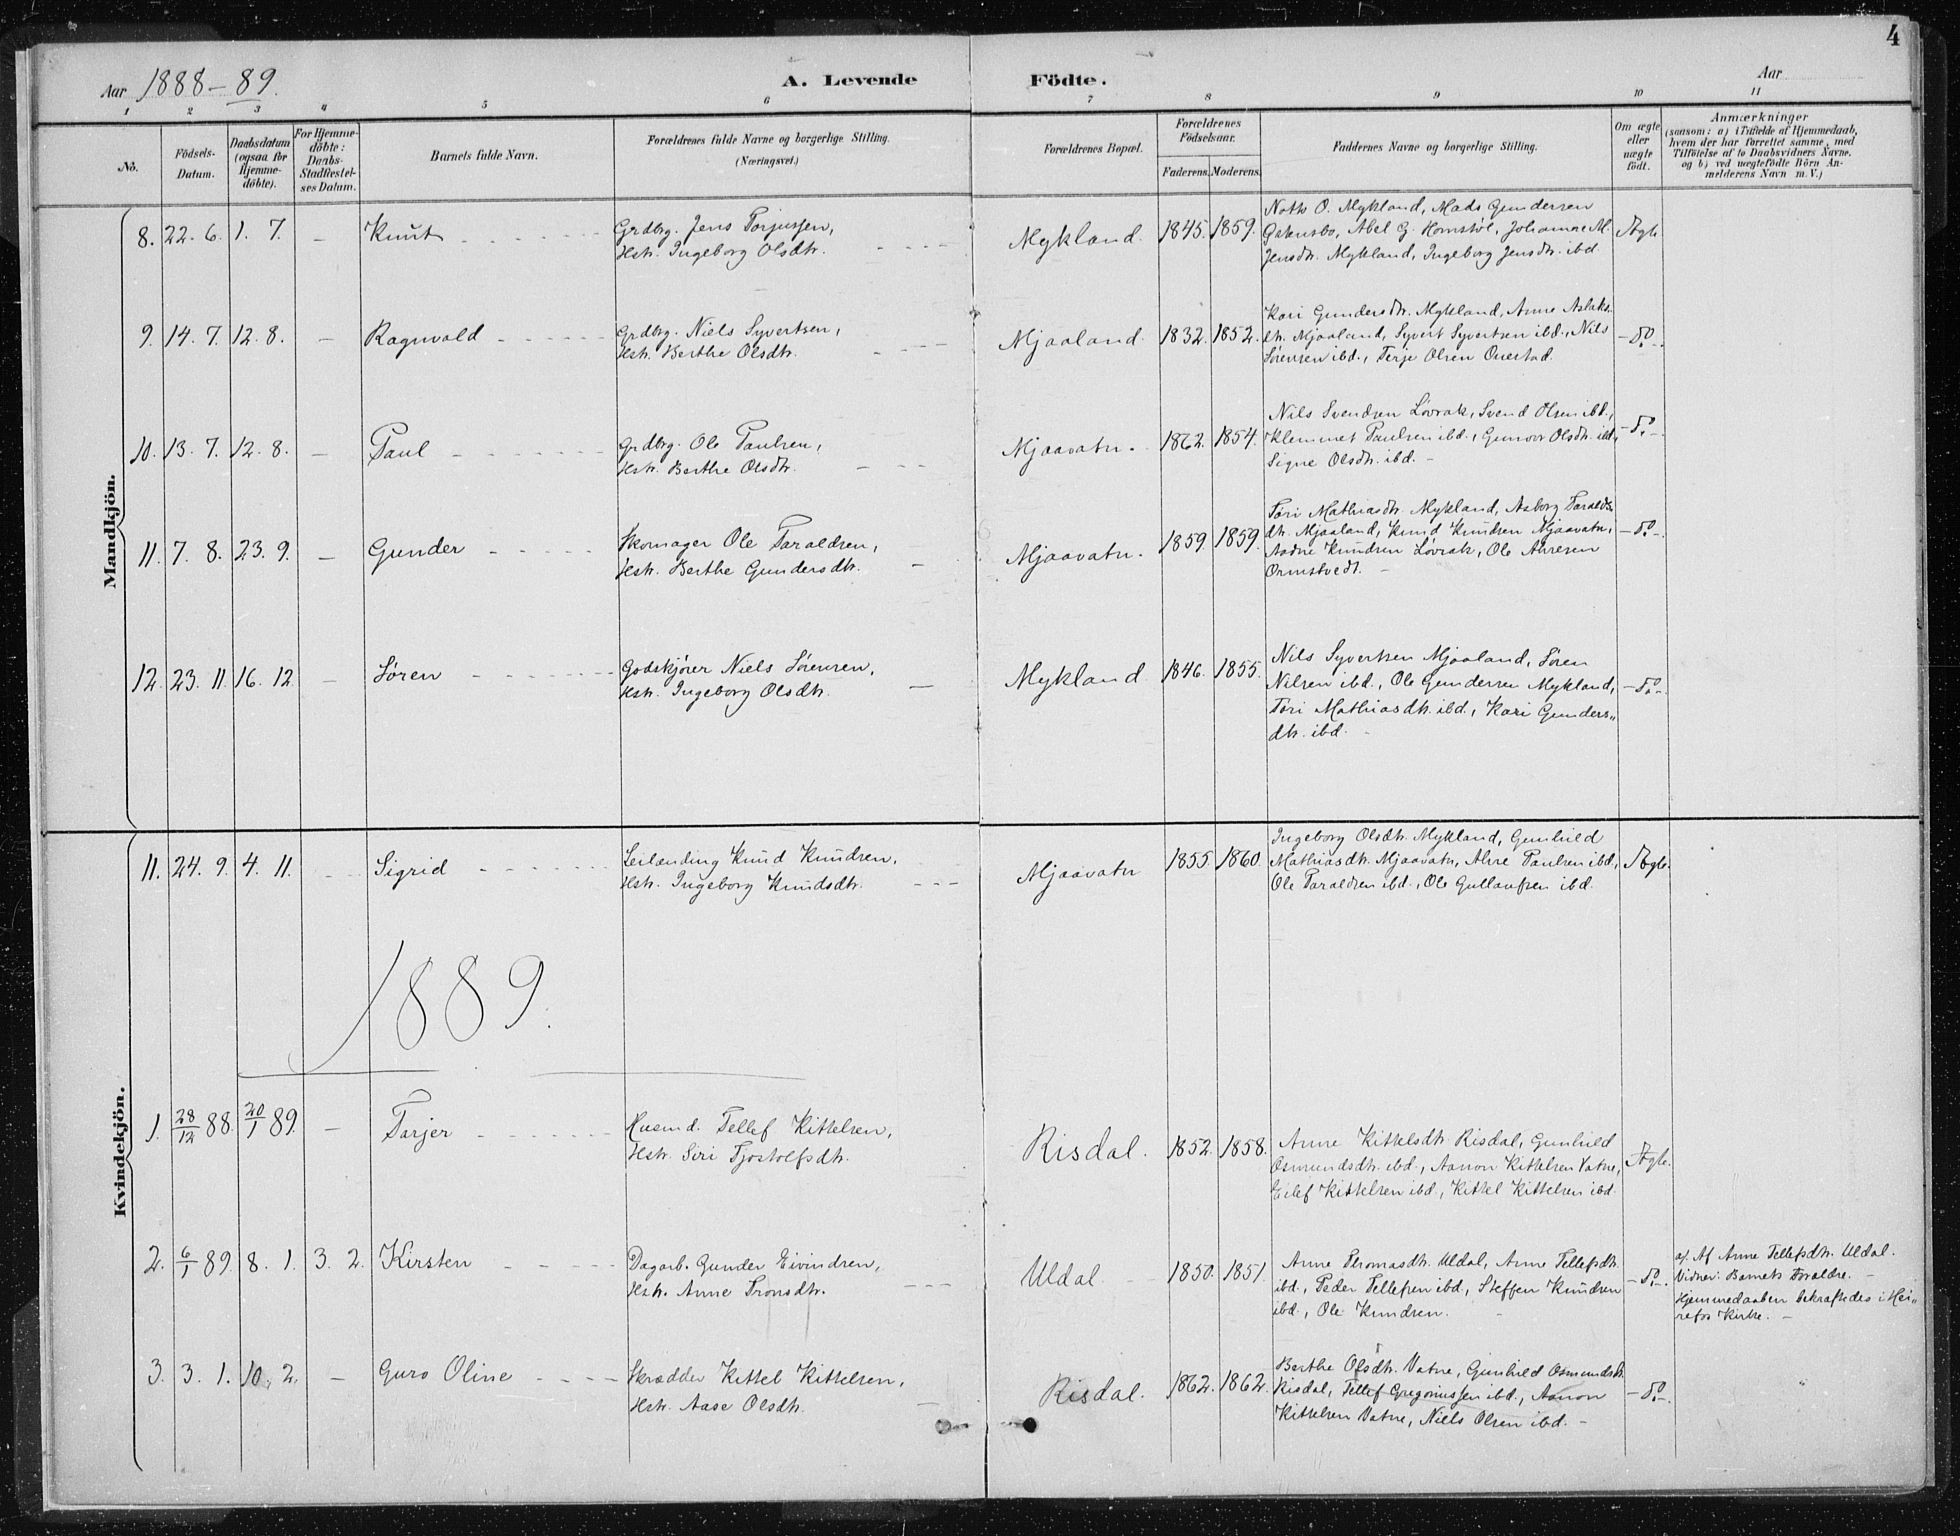 4
Aar 1888-89.
A. Levende Födte.
Aar
1 2 3 4 5 6 7 8 9 10 11
No.
Födsels-Datum.
Daabsdatum (ogsaa for Hjemmedöbte).
For Hjemmedöbte: Daabs-Stadfæstelses Datum.
Barnets fulde Navn.
Forældrenes fulde Navne og borgerlige Stilling. (Næringsvei.)
Forældrenes Bopæl.
Forældrenes Födselsaar.
Faderens. Moderens.
Faddernes Navne og borgerlige Stilling.
Om ægte eller uægte födt.
Anmærkninger
(saasom: a) i Tilfælde af Hjemmedaab, hvem der har forrettet samme, med Tilföielse af to Daabsvidners Navne, og b) ved uegtefödte Börn Anmelderens Navn m. V.)
Mandkjön.
8. 22. 6. 1. 7. – Knut
Grdbr. Jens Torjussen,
Hstr. Ingeborg Olsdtr.
Mykland. 1845. 1859.
O. Mykland, Mads Gundersen
Abel G. Homstøl, Johanne M.
Jensdtr. Mykland, Ingeborg Jensdtr. ibd.
Ægte.
9. 14. 7. 12. 8. – Ragnvald
Grdbr. Niels Syvertsen,
Hstr. Berthe Olsdtr.
Mjaaland. 1832. 1852.
Kari Gundersdtr. Mykland, Anne Aslaks-
dtr. Mjaaland, Syvert Syvertsen ibd., Nils
Sørensen ibd., Terje Olsen
– do –
10. 13. 7. 12. 8. – Paul
Grdbr. Ole Paulsen,
Hstr. Berthe Olsdtr.
Mjaavatn. 1862. 1854.
Nils Svendsen Løvrak, Svend Olsen ibd.,
Klemmet Paulsen ibd., Gunvor Olsdtr. ibd.,
Signe Olsdtr. ibd. –
– do –
11. 7. 8. 23. 9. – Gunder
Skomager Ole Taraldsen,
Hstr. Berthe Gundersdtr.
Mjaavatn. 1859. 1859.
Tøri Mathiasdtr. Mykland, Asborg Taralds-
dtr. Mjaaland, Knud Knudsen Mjaavatn,
Aadne Knudsen Løvrak, Ole
– do –
12. 23. 11. 16. 12. – Søren
Godskjører Niels Sørensen,
Hstr. Ingeborg Olsdtr.
Mykland 1846. 1855.
Nils Syvertsen Mjaaland, Søren
Nilsen ibd., Ole Gundersen Mykland,
Tøri Mathiasdtr. ibd., Kari Gunders„
dtr. ibd. –
– do –
Kvindekjön.
11. 24. 9. 4. 11. Sigrid
Leilænding Knud Knudsen,
Hstr. Ingeborg Knudsdtr.
Mjaavatn 1855 1860.
Ingeborg Olsdtr. Mykland, Gunhild
Mathiasdtr. Mjaavatn, Paulsen ibd.,
Ole Taraldsen ibd., Ole ibd.
Ægte.
1889.
1. 28/12 88. 20/1 89. – Torjer
Husmd. Tellef Kittelsen,
Hstr. Siri Tjostolfsdtr.
Risdal. 1852. 1858.
Anne Kittelsdtr. Risdal, Gunhild
Osmundsdtr. ibd., Aanon Kittelsen Vatne,
Eilef Kittelsen ibd., Kittel Kittelsen ibd.
Ægte.
2. 6/1 89. 8. 1. 3. 2. Kirsten
Dagarb. Gunder Eivindsen,
Hstr. Anne Tronsdtr.
Uldal. 1850. 1851.
Anne Thomasdtr. Uldal, Anne Tellefsdtr.
ibd., Peder Tellefsen ibd., Steffen Knudsen
ibd., Ole Knudsen.
– do –
a). Af Anne Tellefsdtr. Uldal.
Vidner: Barnets Forældre. –
Hjemmedaaben bekræftedes i Hei„
refos Kirke. –
3. 3. 1. 10. 2. – Guro Oline
Skrædder Kittel Kittelsen,
Hstr. Aase Olsdtr.
Risdal. 1862. 1862.
Berthe Olsdtr. Vatne, Gunhild Osmundsdtr.
Risdal, Tellef Gregoriussen ibd., Aanon
Kittelsen Vatne, Niels Olsen ibd. –
– do –